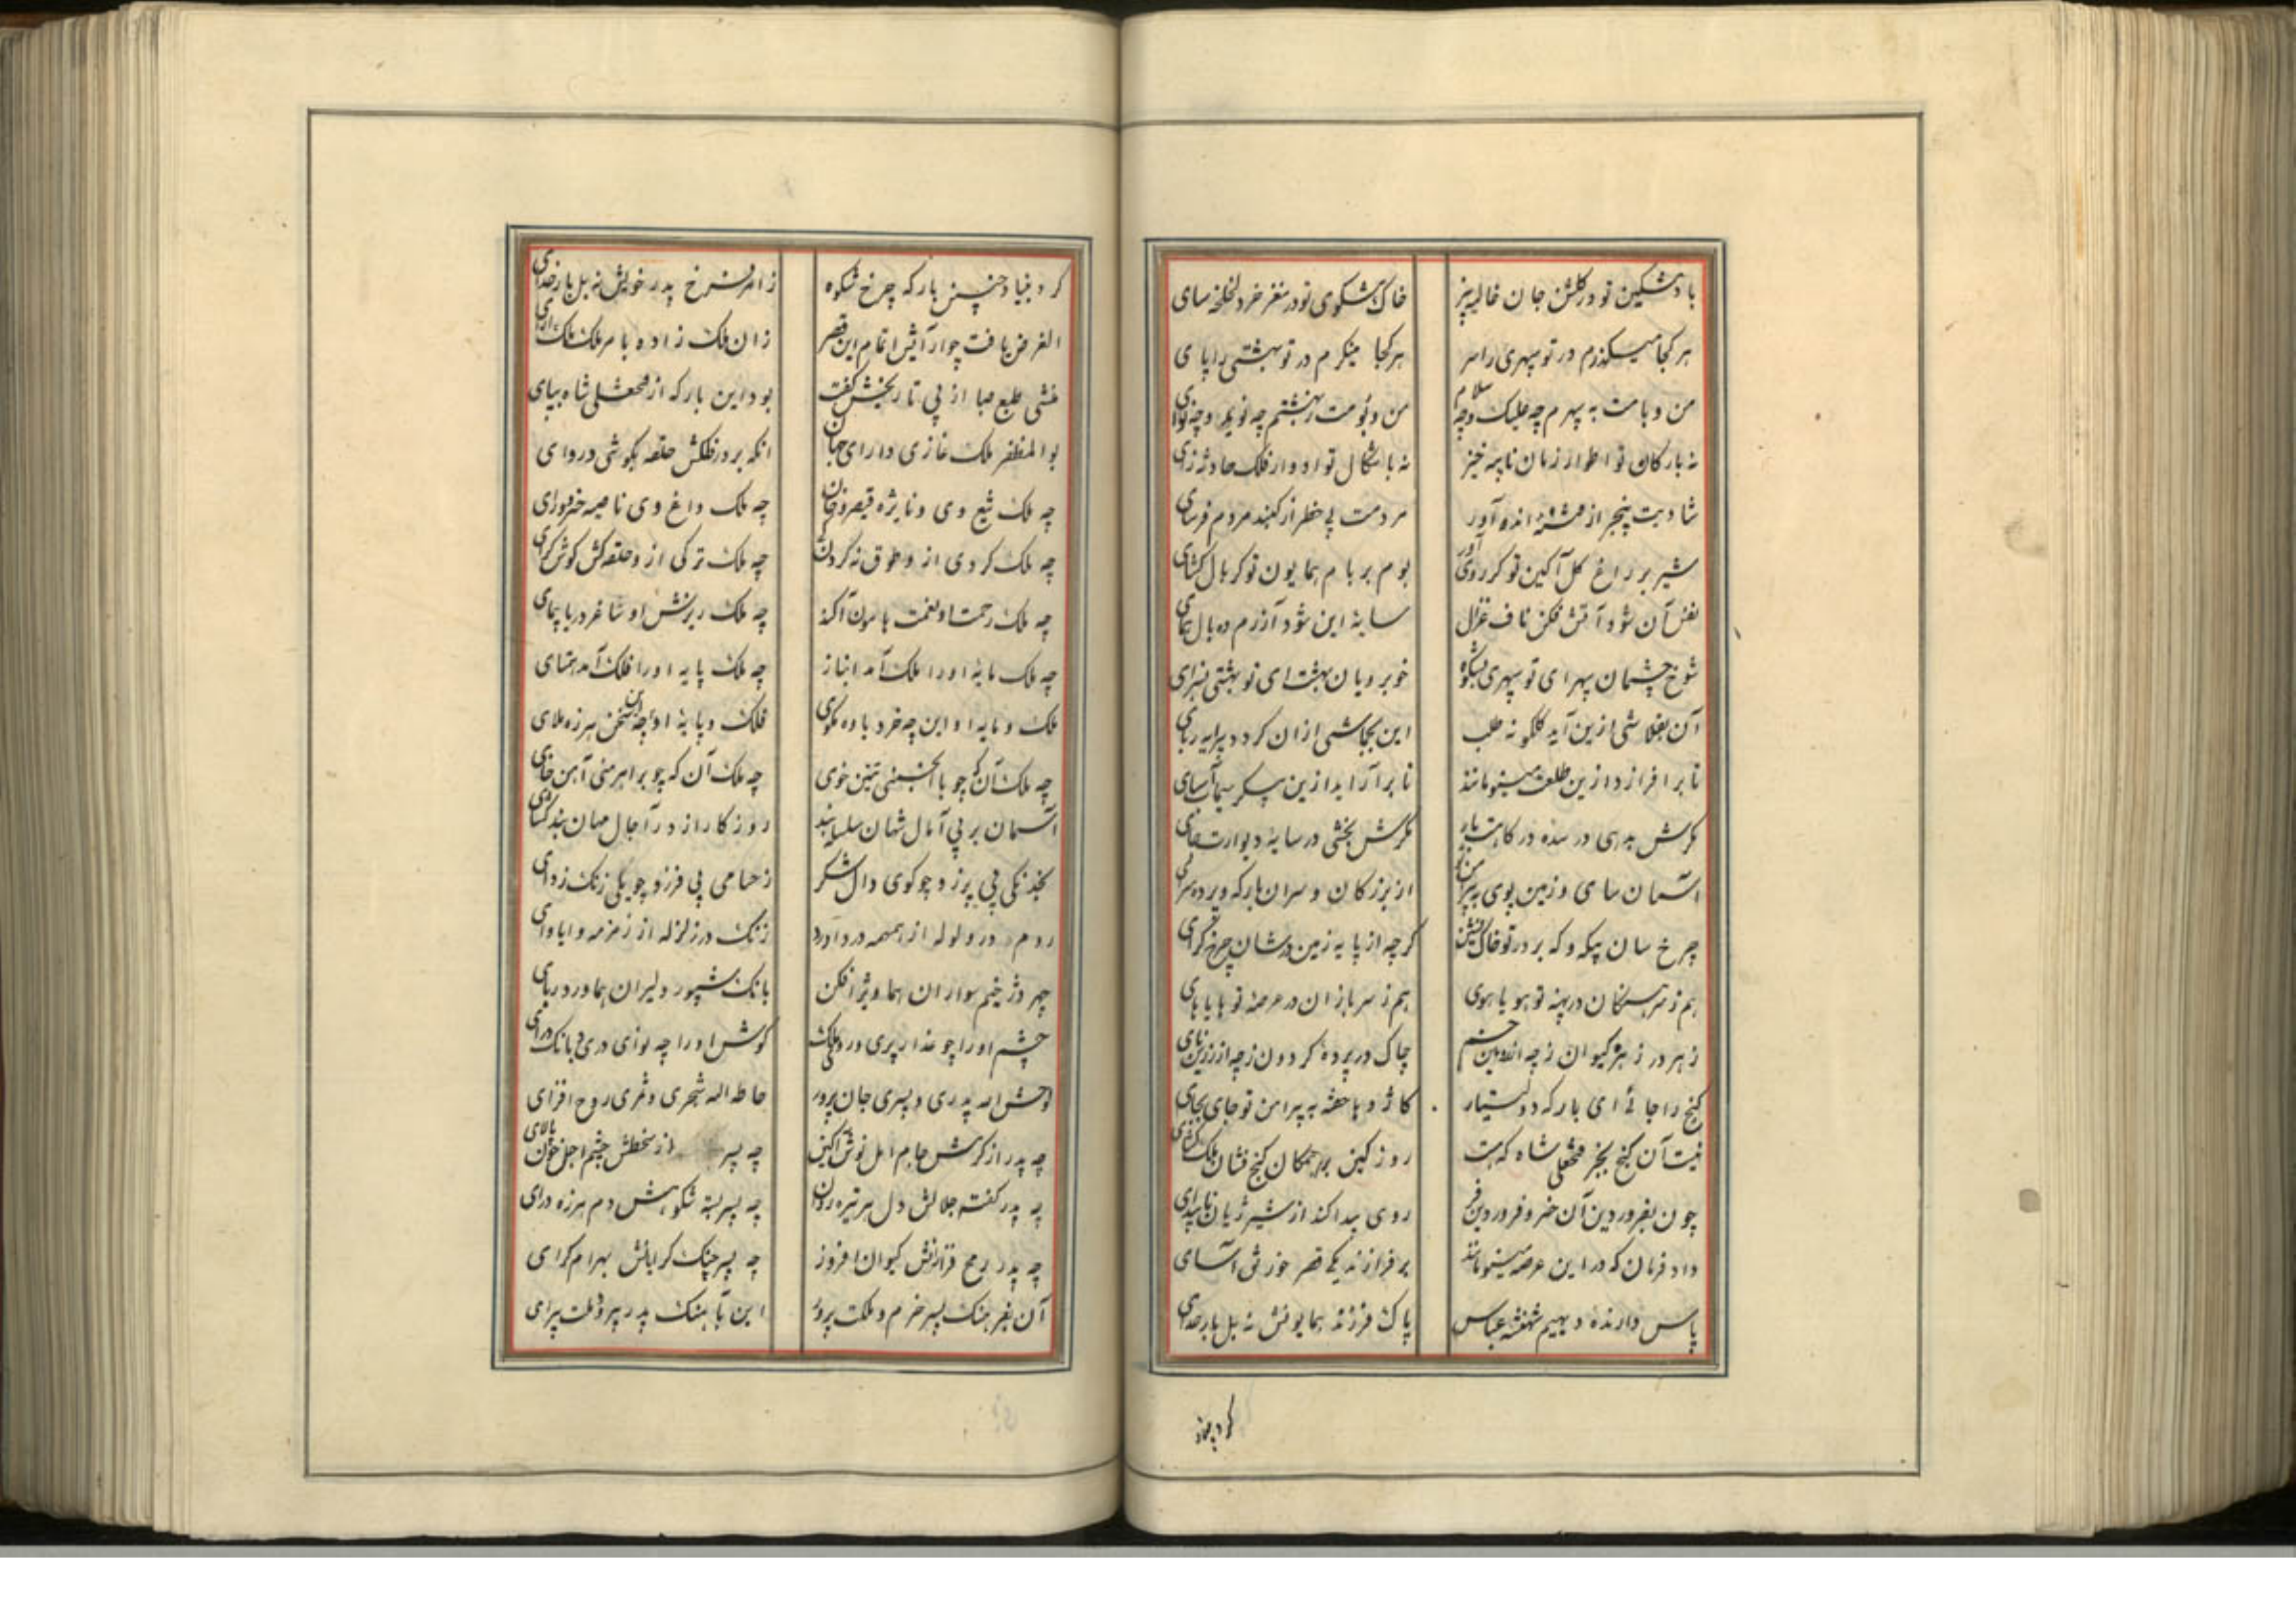 باد مشکین تو در گلشن جان غالیه بیز خاک مشکوی تو در مغز خرد لخلخه سای
هر کجا میگذرم در تو سپهری را سر هر کجا مینگرم در تو بهشتی را پای
من و بامت به سپهرم چه علیک و چه سلام من و بومت ز بهشتم چه نوید و چه نوای
نه بارکان تو اطوار زمان نایبه خیز نه باشکال تو ادوار فلک حادثه زای
شادیت بیخبر از انده آور مردمت بی خطر از کنبد مردم فرسای
شیر بر راغ کل آکین تو کر روی آور بوم بر بام همایون تو کر بال کشای
نفس آن شود آتش فکن ناف غزال سایهٔ این شود آزرم ده بال همای
شوخ چشمان سپهر ای تو سپهری بشکوه خوبرویان بهشت ای تو بهشتی بسرای
آن بقلاشی ازین آید کلکونه طلب این بجماشی ازان کردد پیرایه ربای
تا برافرازد ازین طلعت مینو مانند تا برآراید ازین پیکر سیما سای
مکرش بدهی در سده درکاهت بار مکرش بخشی در سایهٔ دیوارت جای
آسمان سای و زمین پوی به پیرامن از بزرکان و سران بارکه و پرده سرای
چرخ سان پیکر و که بر در تو خاک نشین کرچه از پایه زمین درشان چرخ کرای
هم ز سرهنکان در پهنه تو هویاهوی هم ز سربازان در عرصهٔ تو هایاهای
زهر در زهرهٔ کیوان ز چه از رویین خم چاک در پردهٔ کردون ز چه از زرین نای
کنج را جائی ای بارکه و دستیار کاژدها خفته به پیرامن تو جای بجای
نیست آن کنج بجز فتحعلی شاه که هست روز کین کنج فشان ملک کشای
چون بفروردین آن خسرو فروردین فر روی پیدا کند از شیر ژیان ناپیدای
داد فرمان که در این عرصه مینو مانند برفرازند یکی قصر خورنق آسای
پاس دارندهٔ دیهیم شهنشه عباس پاک فرزند همایونش نه بل بارخدای
کرد بنیاد
کرد بنیاد چنین بارکه چرخ شکوه ز امر فرخ پدر خویش نه بل بار خدای
الغرض یافت چو آرایش اتمام این قصر زان ملک زاده با مر ملک ملک آرای
منشی طبع صبا از پی تاریخش کفت بود این بارکه از فتحعلی شاه بپای
بوالمظفر ملک غازی دارای جهان انکه بر در فلکش حلقه بکوشی دروای
چه ملک تیغ وی و نایژه قیصر و خان چه ملک داغ وی و ناصیه خسرو و رای
چه ملک کردی ازو طوق نه کردن چه ملک ترکی ازو حلقه کش کوش کرای
چه ملک رحمت او نعمت هامون آکند چه ملک ریزش او ساغر دریا پیمای
چه ملک مایهٔ او را ملک آمد انباز چه ملک پایه او را فلک آمد همتای
ملک و مایه او این چه خرد یاوه مکوی فلک و پایهٔ او این چه سخن هرزه ملای
چه ملک آن که چو با انجمنی تنین خوی چه ملک آن که چو بر اهرمنی آهن خای
آسمان بر پی آمال شهان سلسله بند روزکار از در آجال مهان بند کشای
بخدنکی پی پرزد چو کوی دال شکر ز حسامی پی فرزد چو یکی زنک زدای
روم در ولوله از همهمه در دآورد زنک در زلزله از زمزمه وایاوای
چهر دژخیم سواران هماویز افکن بانک شیپور دلیران هماورد ربای
چشم او را چو عذار پری و روی ملک کوش او را چه نوای دری و بانک درای
لوحش الله پدری و پسری جان پرور حاطه الله شجری و ثمری روح افزای
چه پدر از کرمش جام امل نوش آکین چه پسر از سخطش چشم اجل خون پالای
چه پدر کفته جلالش دل هر تیره روان چه پسر بسته شکوهش دم هرزه درای
چه پدر رمح فرازنش کیوان افروز چه پسر چنک کرایانش بهرام کرای
آن بفرهنک پسر خرم و ملکت پرور این بآهنک پدر پیرو ملت پیرای